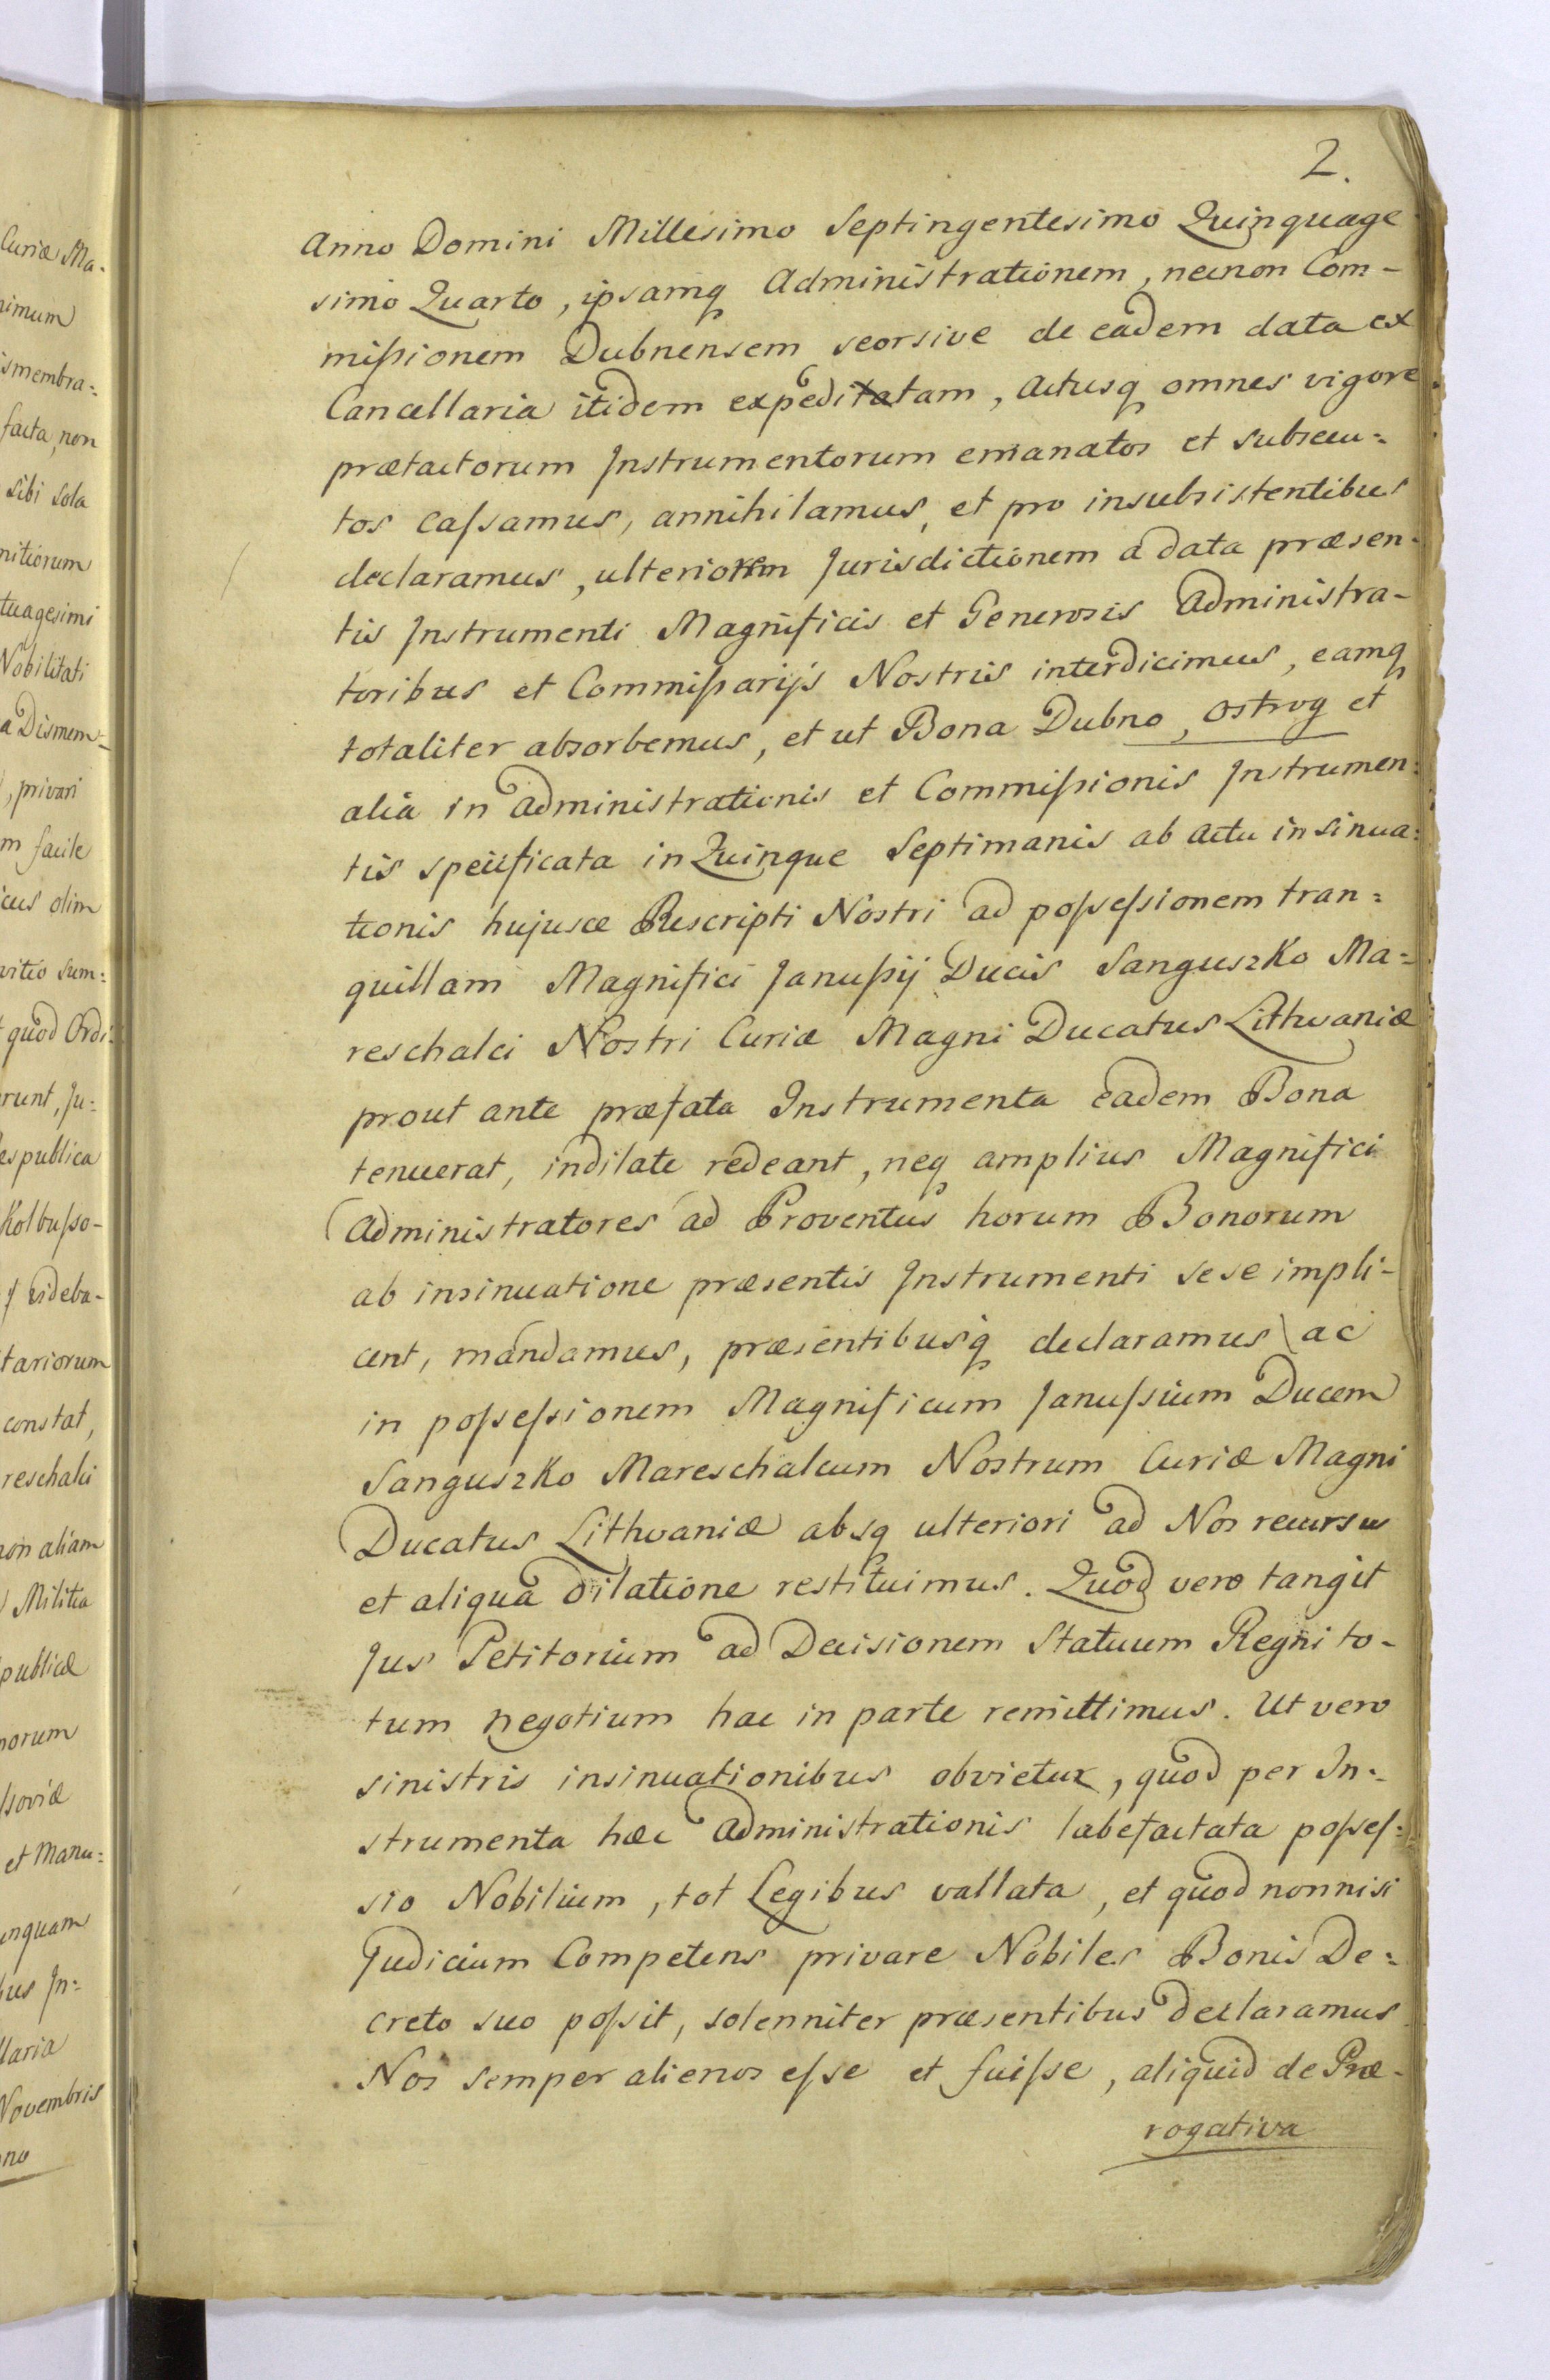 2.
Anno Domini Millesimo Septingentesimo Quinquage
simo Quarto, ipsamq Administrationem, necnon Com-
mißionem Dubnensem seorsive de eadem data ex
Cancellaria itidem expeditatam, Actusq omnes vigore
prætactorum Instrumentorum emanatos et subsecu=
tos caſsamus, annihilamus, et pro insubsistentibus
declaramus, ulteriorem Jurisdictionem a data præsen-
tis Instrumenti Magnificis et Generosis Administra-
toribus et Commißarijs Nostris interdicimus, eamq
totaliter absorbemus, et ut Bona Dubno, Ostrog et
alia in Administrationis et Commißionis Instrumen=
tis specificata in Quinque Septimanis ab Actu insinua=
tionis hujusce Rescripti Nostri ad poſseſsionem tran=
quillam Magnifici Janußij Ducis Sanguszko Ma=
reschalci Nostri Curiæ Magni Ducatus Lithvaniæ
prout ante præfata Instrumenta eadem Bona
tenuerat, indilate redeant, neq amplius Magnifici
Administratores ad Proventus horum Bonorum
ab insinuatione præsentis Instrumenti sese impli-
cent, mandamus, præsentibusq declaramus ac
in poſseſsionem Magnificum Januſsium Ducem
Sanguszko Mareschalcum Nostrum Curiæ Magni
Ducatus Lithvaniæ absq ulteriori ad Nos recursu
et aliqua dilatione restituimus. Quod vero tangit
Jus Petitorium ad Decisionem Statuum Regni to-
tum negotium hac in parte remittimus. Ut vero
sinistris insinuationibus obvietur, quod per In=
strumenta hæc Administrationis labefactata poſseſ=
sio Nobilium, tot Legibus vallata, et quod nonnisi
Judicium Competens privare Nobiles Bonis De=
creto suo poſsit, solenniter præsentibus declaramus
Nos semper alienos eſse et fuiſse, aliquid de Præ-
rogativa
Curiæ Ma-
facta, non
sibi sola
Nobilitati
a Dismem=
, privari
facile
olim
quod Ordi=
, Ju=
Kolbuſso-
constat,
non aliam
Militia
et Manu=
Novembris